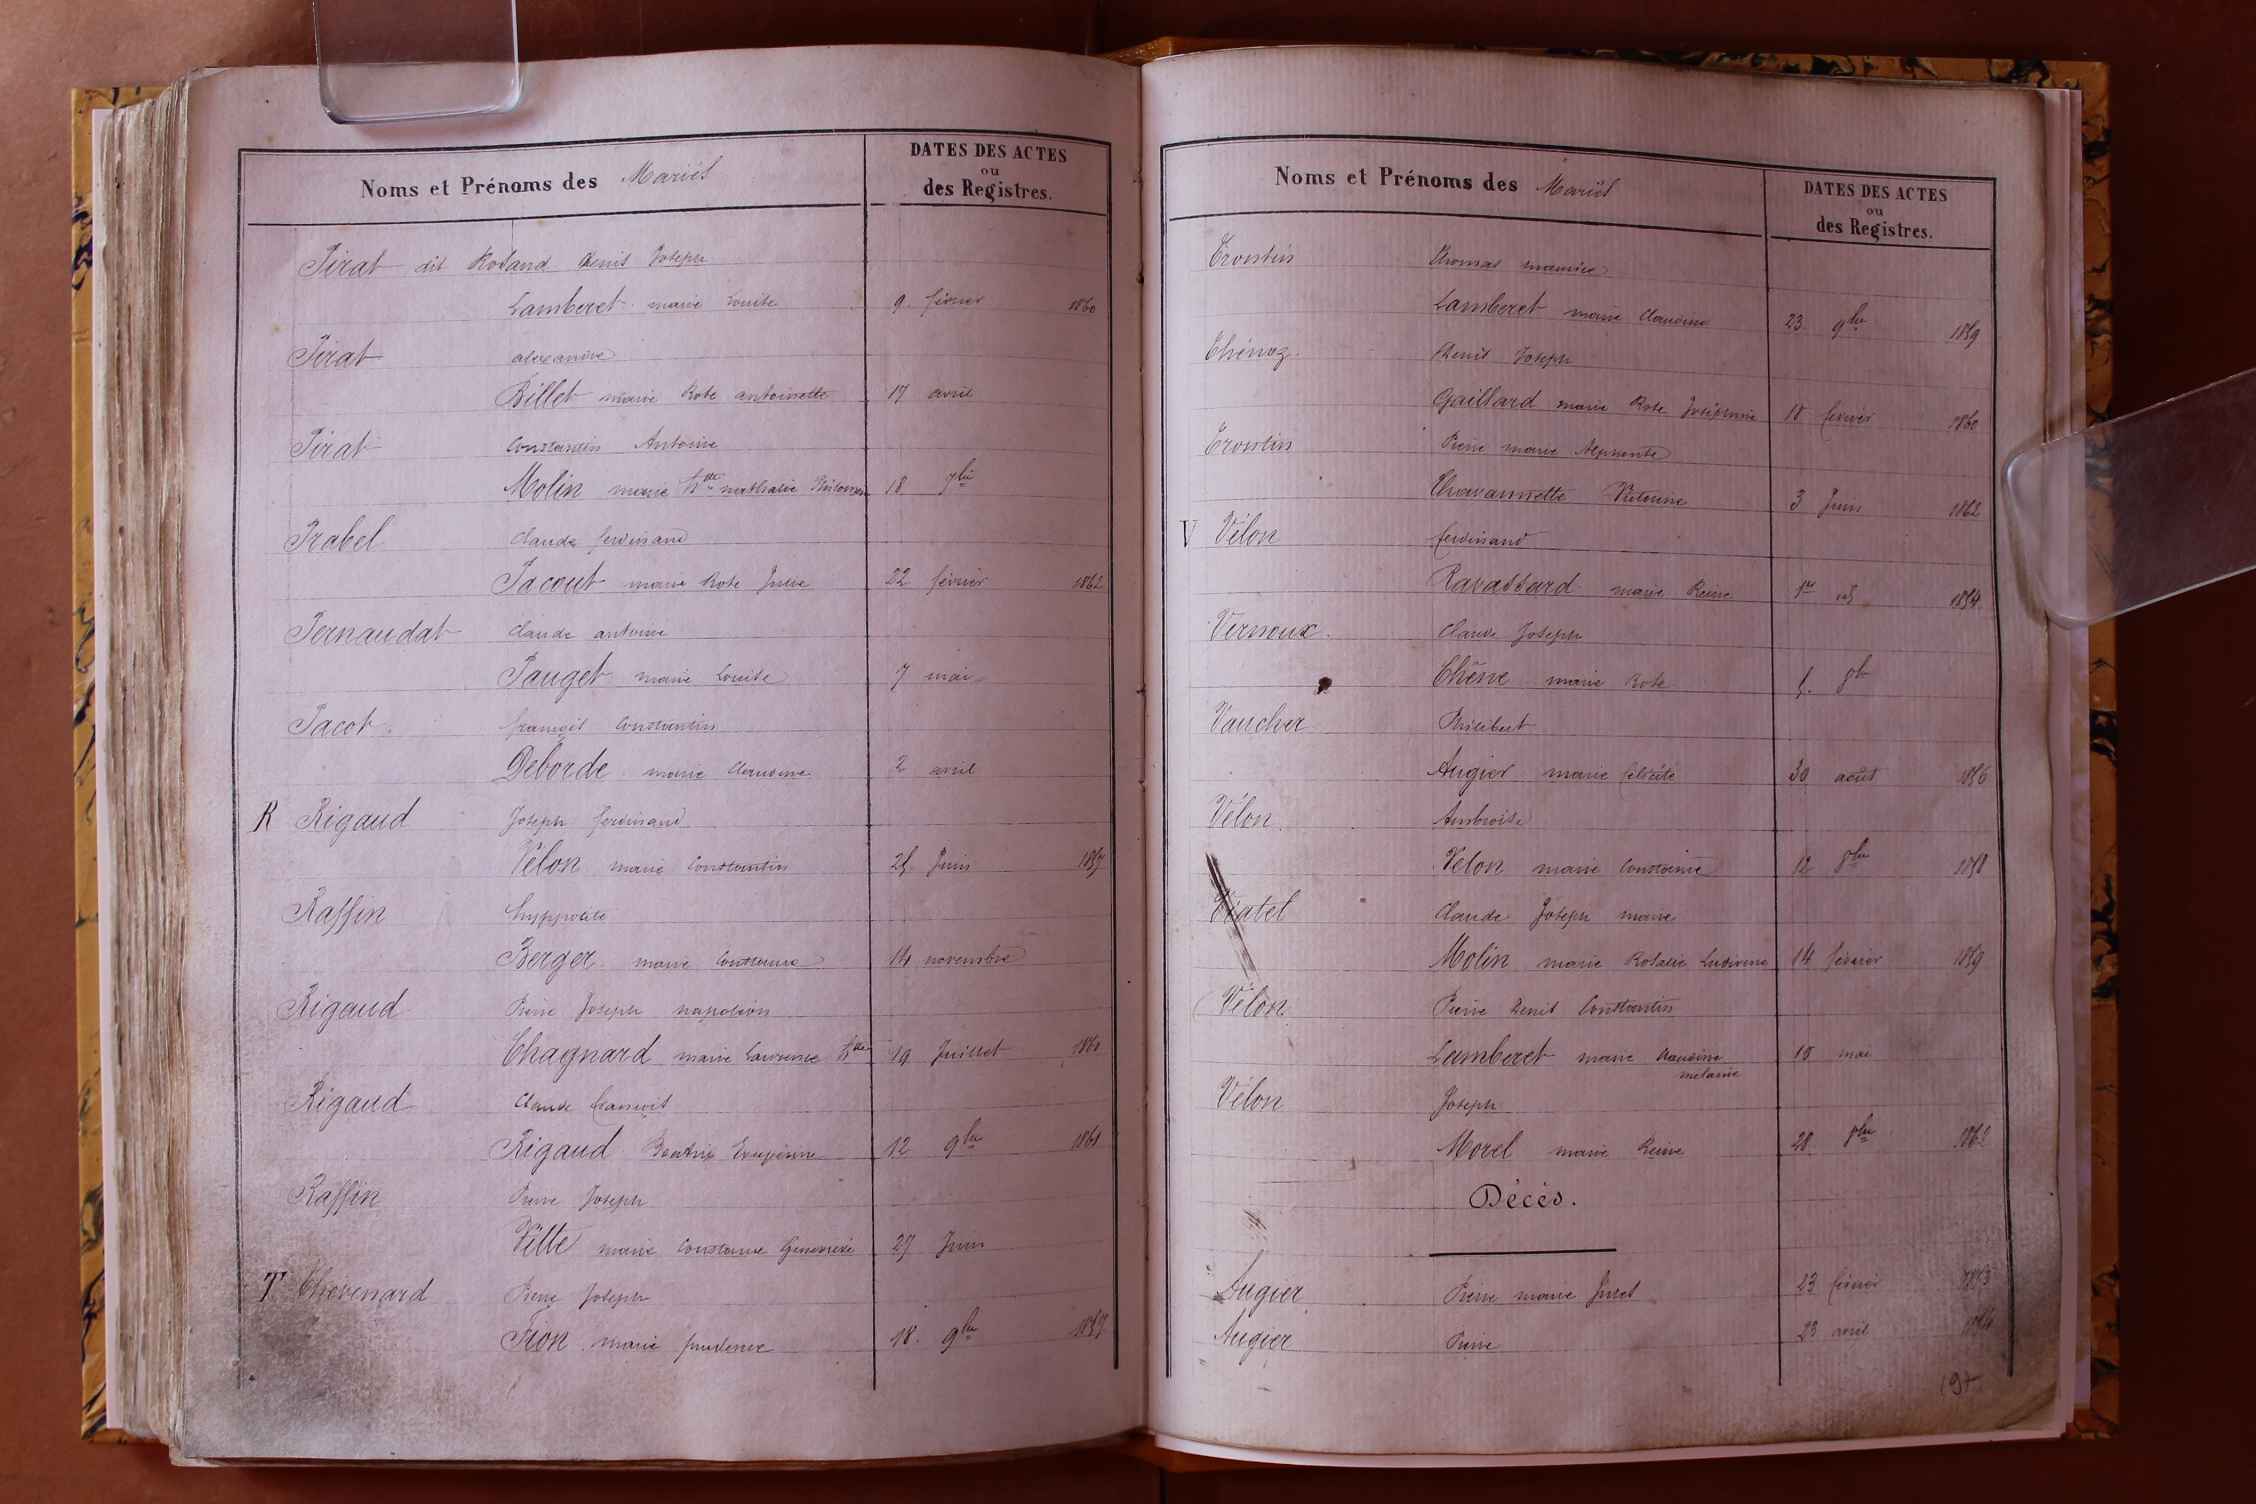 Noms et Prénoms des Mariés
DATES DES ACTES
ou
des Registres.
Pirat dit Roland Denis Joseph
Lamberet marie Louise 9 février 1860
Pirat alexandre
Billet marie Rose antoinette 17 avril
Pirat Constantin Antoine
Molin marie nathalie 18 7bre
Prabel Claude ferdinand
Pacout marie Rose Julie 22 février 1862
Pernaudat Claude antoine
Pauget marie Louise 7 mai
Pacot françois Constantin
Deborde marie Claudine 2 avril
R Rigaud Joseph ferdinand
Vélon marie Constantin 25 Juin 1857
Raffin hyppolite
Berger marie Constance 14 novembre
Rigaud Pierre Joseph napoléon
Chagnard marie Laurence 19 Juillet 1860
Rigaud Claude françois
Rigaud Beatrix 12 9bre 1861
Raffin Pierre Joseph
Ville marie Constance Geneviève 27 Juin
T Thevenard Pierre Joseph
Fion marie prudence 18. 9bre 1857
Noms et Prénoms des Mariés
DATES DES ACTES
ou
des Registres.
Trontin Thomas maurice
Lamberet marie Claudine 23 9bre 1859
Thénoz Denis Joseph
Gaillard marie Rose Joséphine 18 février 1860
Trontin Pierre marie Alphonse
Chavannette Victorine 3 Juin 1862
V Vélon ferdinand
Ravassard marie Reine 1er 1854
Vernoux Claude Joseph
Chêne marie Rose 5. 8bre
Vaucher Philibert
Augier marie félicité 30 août 1856
Vélon Ambroise
Velon marie Constance 12 8bre 1858
Viatel Claude Joseph marie
Molin marie Rosalie Ludivine 14 février 1859
Vélon Pierre Denis Constantin
Lamberet marie Claudine mélanie 15 mai
Vélon Joseph
Morel marie Reine 28 8bre 1862
Décès.
Augier Pierre marie Jules 23 février 1853
Augier Pierre 23 avril 1854
197